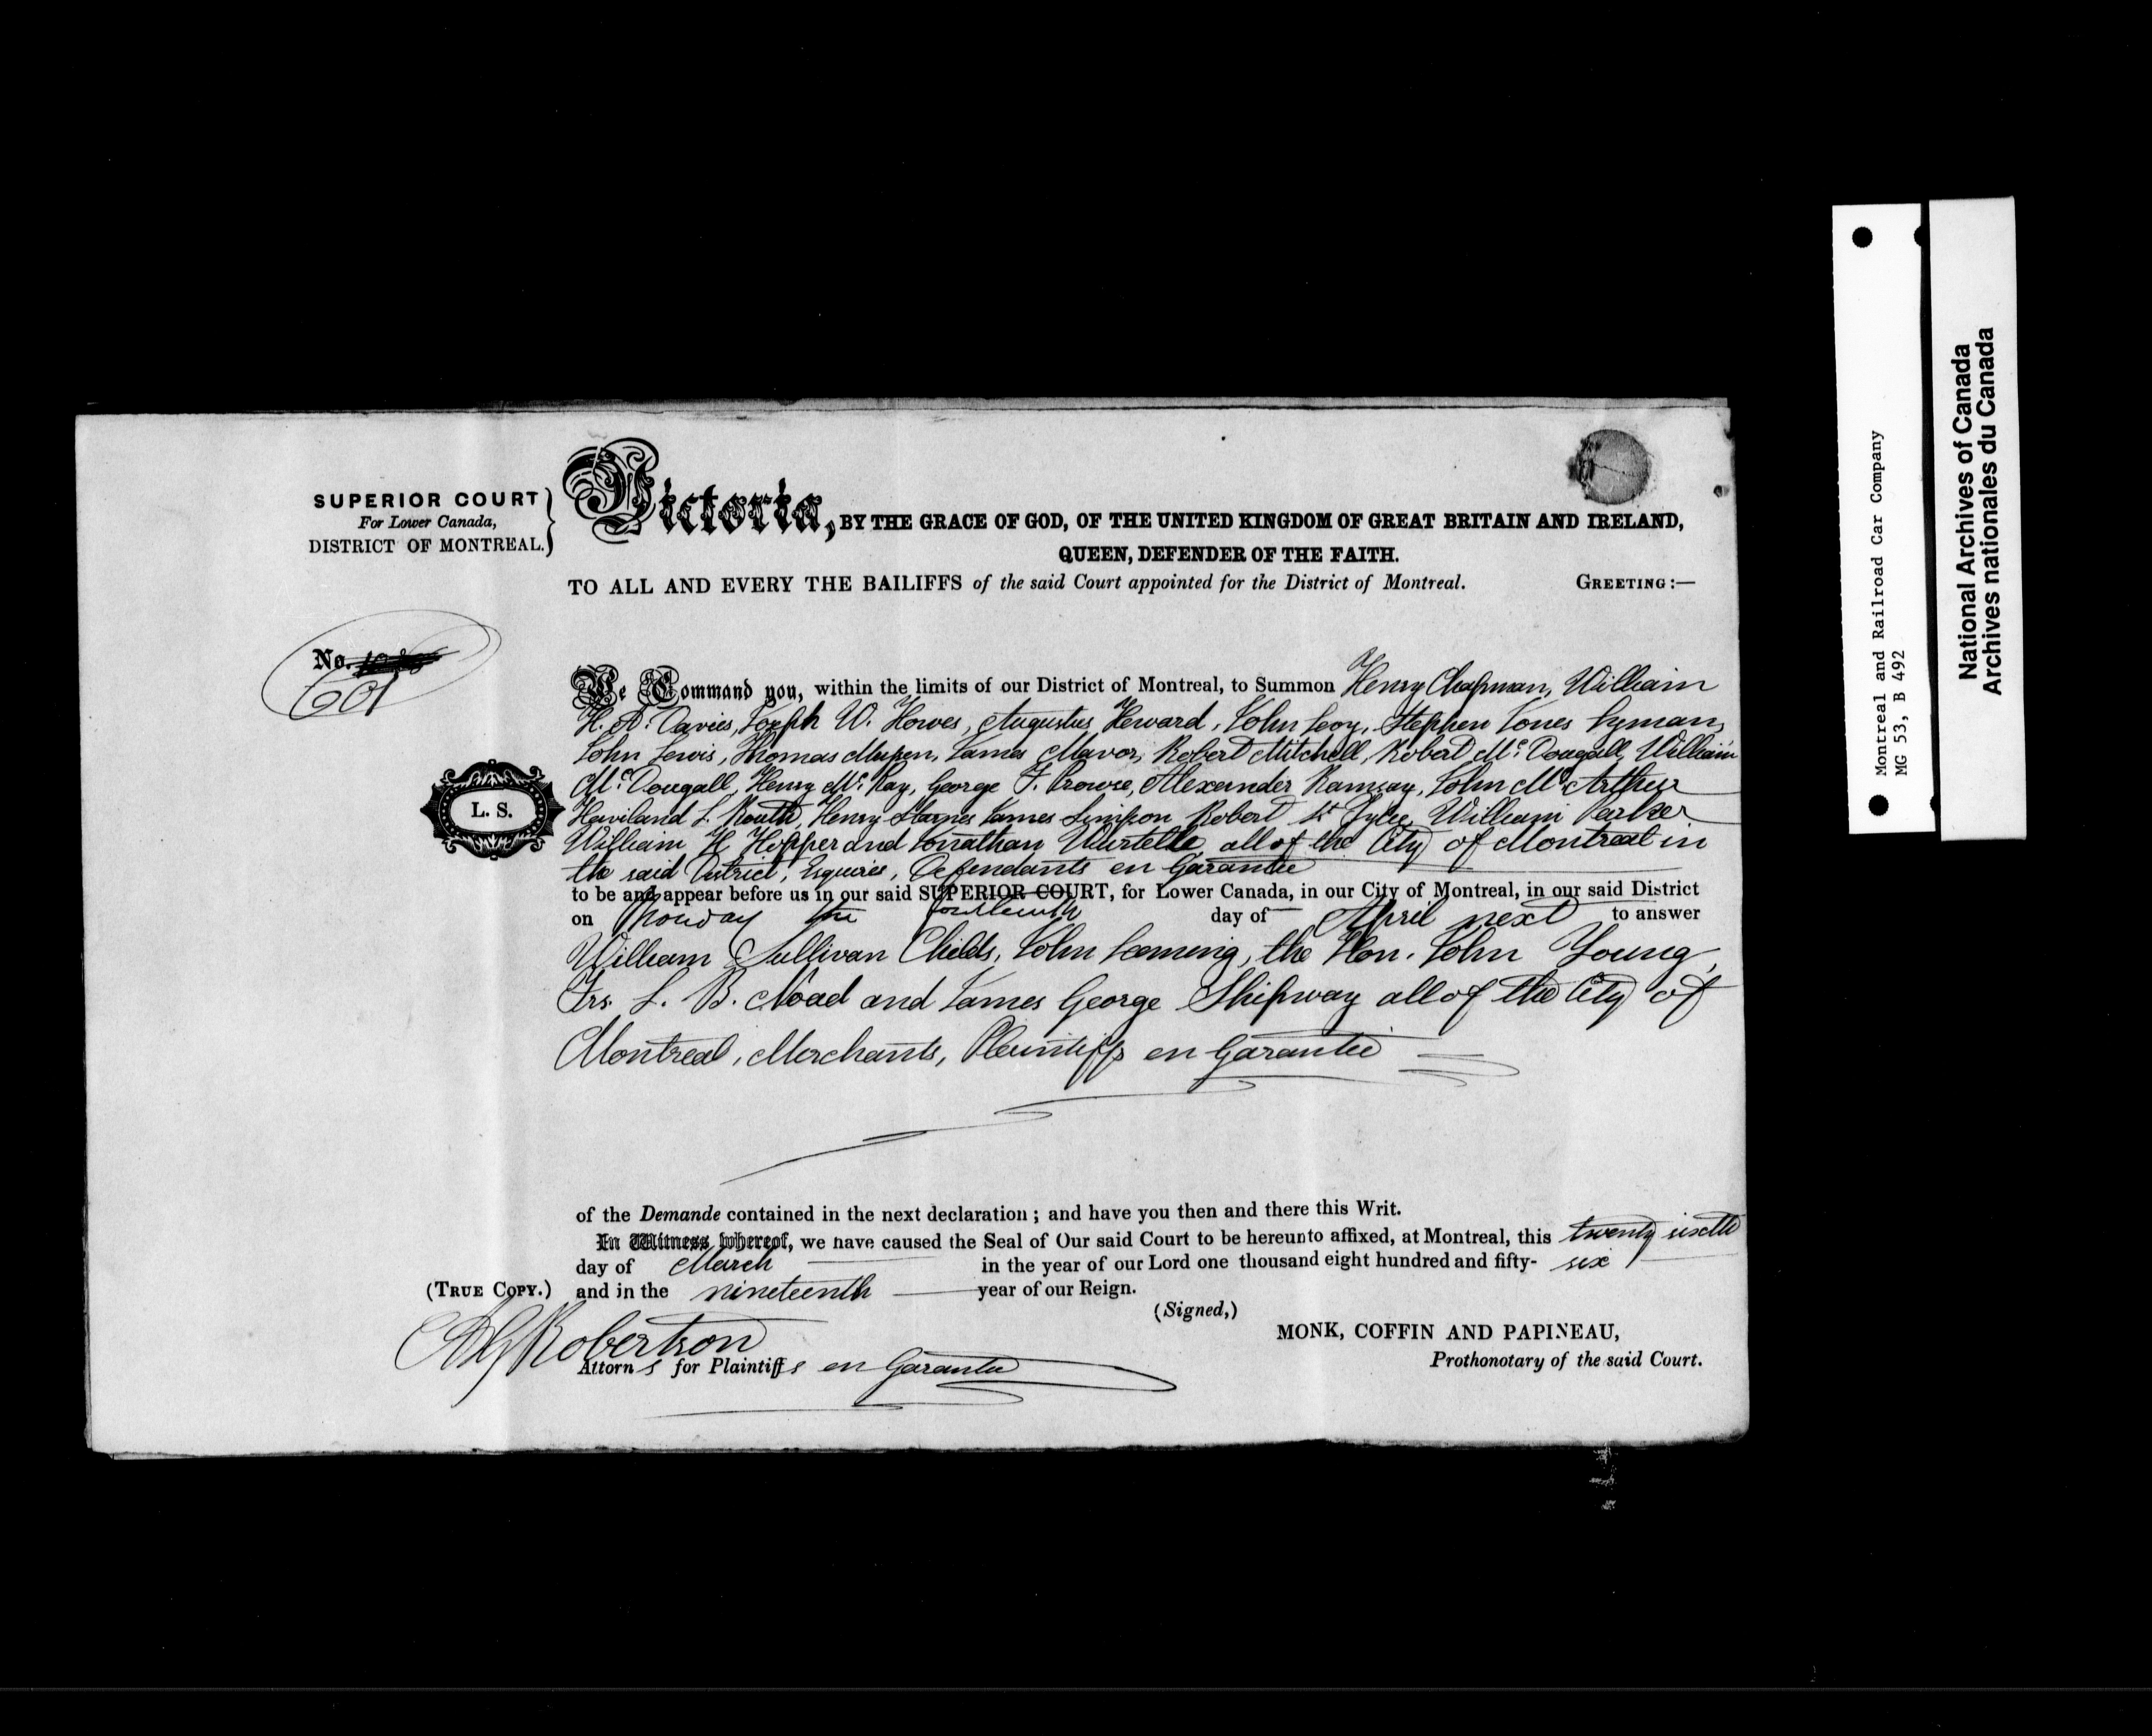 SUPERIOR COURT
For Lower Canada,
DISTRICT OF MONTREAL.
Victoria, BY THE GRACE OF GOD, OF THE UNITED KINGDOM OF GREAT BRITAIN AND IRELAND,
QUEEN, DEFENDER OF THE FAITH.
TO ALL AND EVERY THE BAILIFFS of the said Court appointed for the District of Montreal. GREETING:—
No.
601
We Command you, within the limits of our District of Montreal, to Summon Henry Chapman, William
H. A. Davies, Joseph W. Howes, Augustus Heward, John Levy, Stephen Jones Lyman,
John Lewis, Thomas Mussen, James Mavor, Robert Mitchell, Robert McDougall, William
McDougall, Henry McKay, George F. Prowse, Alexander Ramsay, John McArthur
Haviland L. Routh, Henry Starnes James Simpson Robert William Parker
William H Hopper and Jonathan Wurtelle, all of the City of Montreal in
the said District, Esquires, Defendants en Garantie
L. S.
to be and appear before us in our said SUPERIOR COURT, for Lower Canada, in our City of Montreal, in our said District
on Monday the fourteenth day of April next to answer
William Sullivan Childs, John Leeming, the Hon. John Young,
Frs. L. B. Noad and James George Shipway all of the City of
Montreal, Merchants, Plaintiffs en Garantie
of the Demande contained in the next declaration; and have you then and there this Writ.
In Witness whereof, we have caused the Seal of Our said Court to be hereunto affixed, at Montreal, this twenty sixth
day of March in the year of our Lord one thousand eight hundred and fifty- six
(TRUE COPY.) and in the nineteenth year of our Reign.
(Signed,)
MONK, COFFIN AND PAPINEAU,
Prothonotary of the said Court.
A&G Robertson
Attorns for Plaintiffs en Garantie
Montreal and Railroad Car Company
MG 53, B 492
National Archives of Canada
Archives nationales du Canada